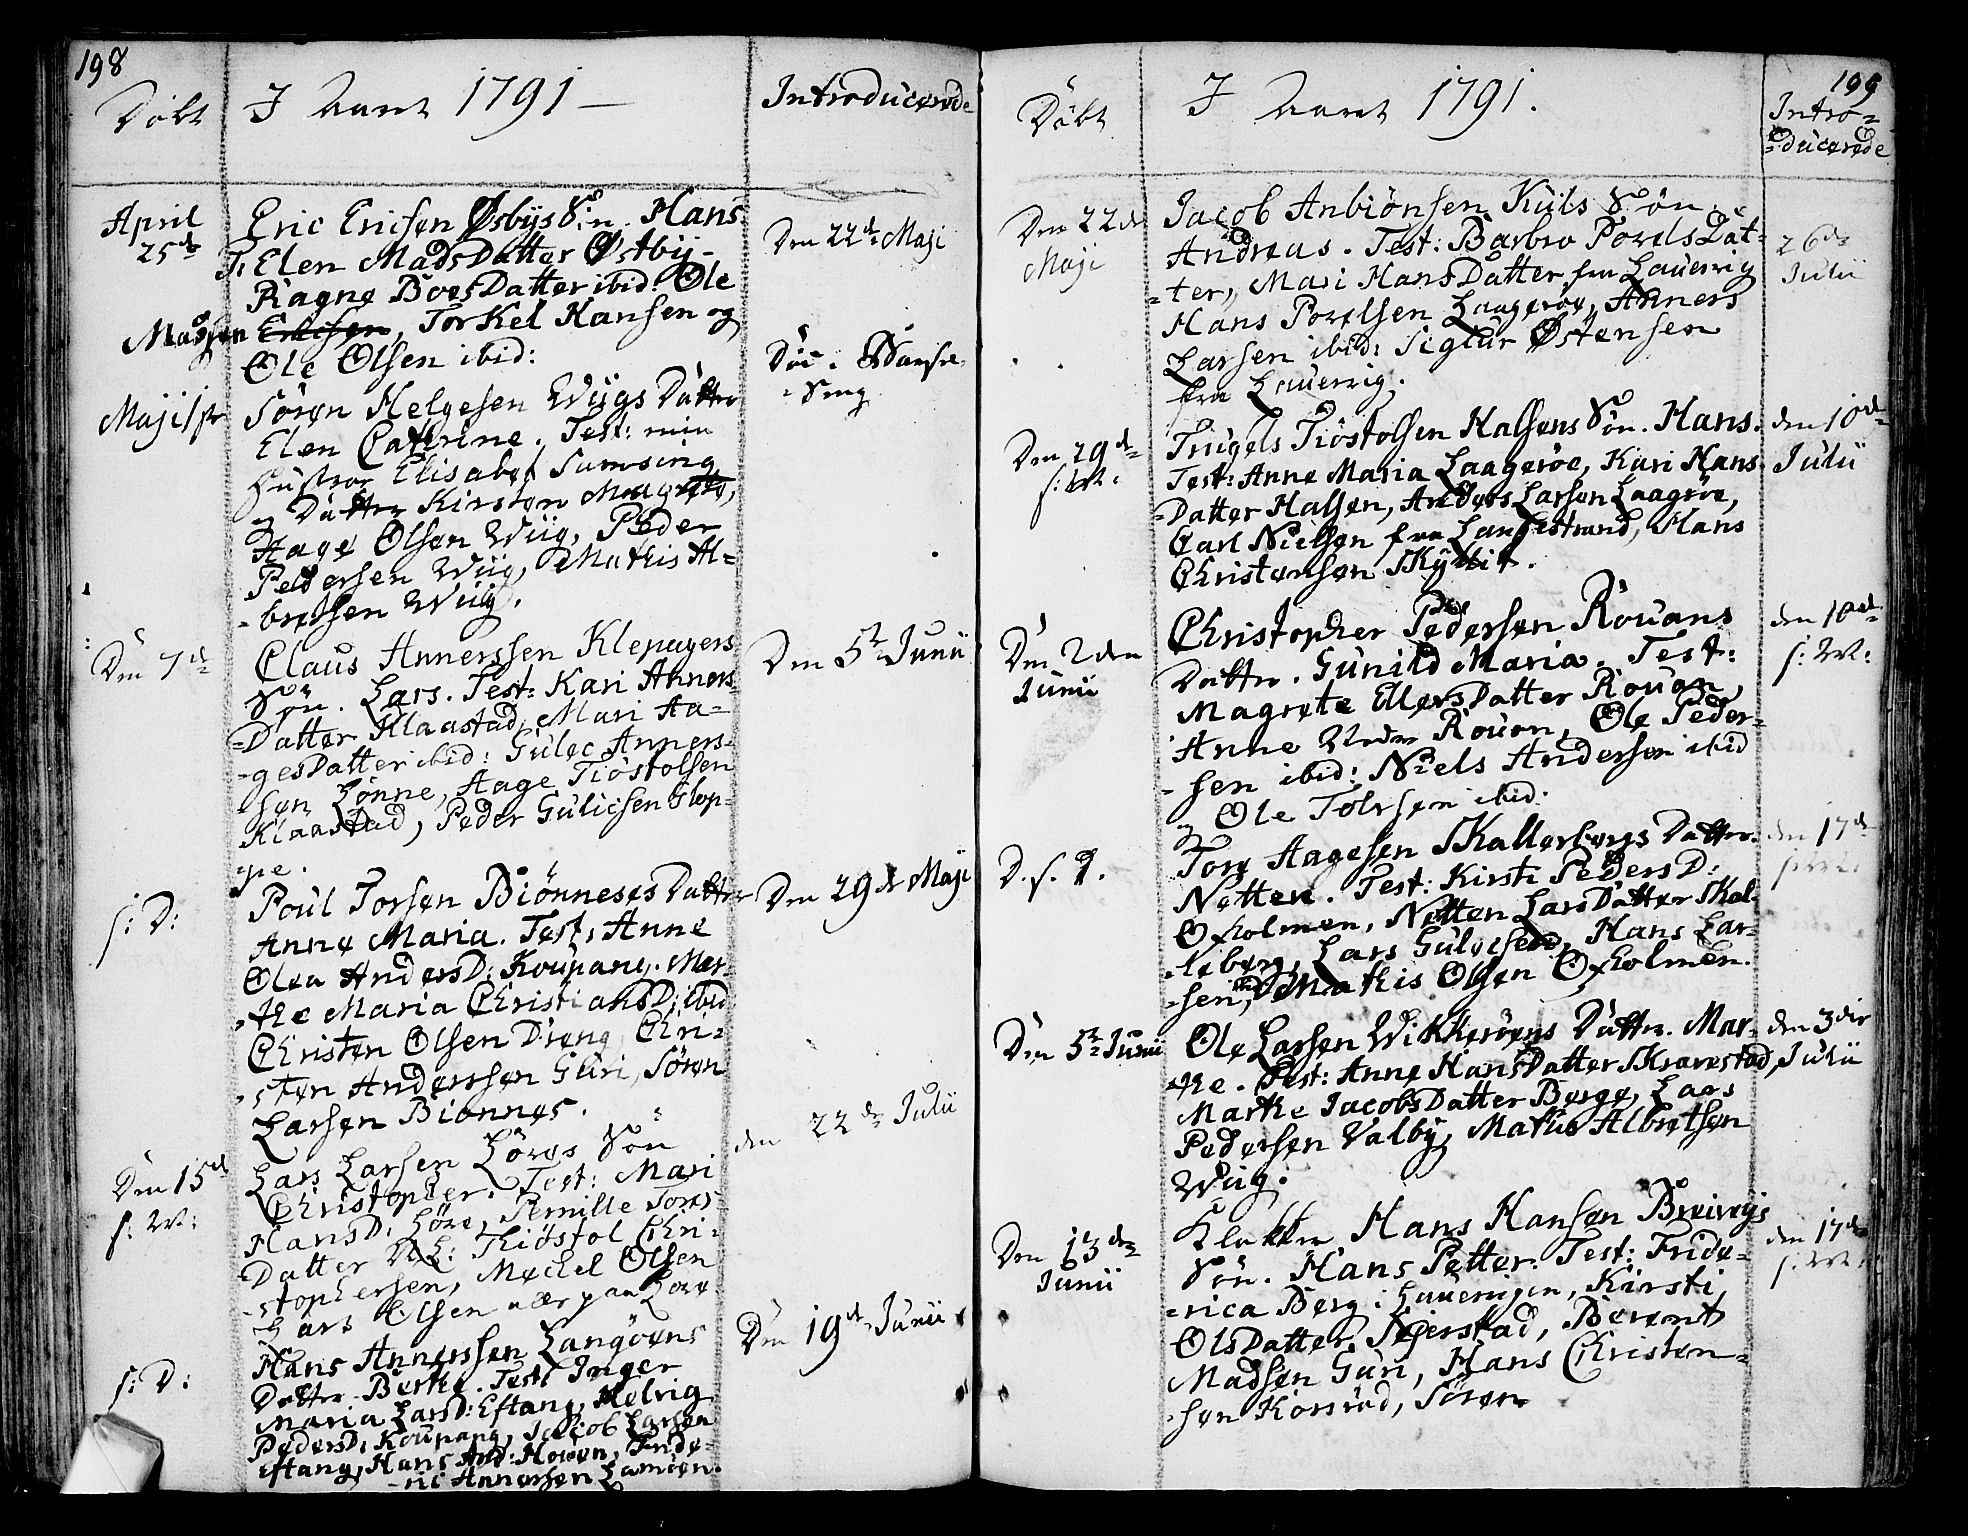 198
Döbt
I Aaret 1791 —
Introducerede
April
25de
Eric Ericsen Østbys S:n. Hans
T: Elen MadsDatter Østby-
Ragne BoesDatter ibid: Ole
Madsen Ericsen, Torkel Hansen og
Ole Olsen ibid:
Den 22de Maji
Maji 1ste
Sören Helgesen Wiigs Datter
Elen Cathrine. Test: min
Hustroe Elisabet Sumsing
og Datter Kirsten Magrete,
Aage Olsen Wiig, Peder
Pedersen Wiig, Mathis Al-
-bretsen Wiig.
Den 7de
Claus Annerssen Klepagers
Sön. Lars. Test: Kari Anners-
-Datter Klaastad, Mari Aa-
-gesDatter ibid: Gulec Anners-
-sen Lönne, Aage Tiöstolsen
Klaastad, Peder Gulicsen Glop-
-pe.
Den 5te Junii
s: D:
Poul Torsen Biönneses Datter
Anne Maria. Test: Anne
Olea AndersD: Koupang. Mar-
-the Maria ChristiansD: ibid
Christen Olsen Dreng, Chri-
-sten Anderssen Guri, Sören
Larsen Bionnes.
Den 29de Maji
Den 15de
s: M:
Lars Larsen Höres Sön
Christopher. Test: Mari
HansD: Höre, Pernille Tores-
Datter Thiöstol Chri-
-stophersen, Mechel Olsen
Lars Olsen alle paa Höre
den 22de Julii
s: D:
Hans Annerssen Langöens
Datter Berthe. Test: Inger
Maria LarsD: Eftang, Helvig
PedersD: Koupang, Jacob Larsen
Eftang, Hans And: Hoven, Fride-
-ric Annersen Lamöen.
Den 19de Junii
199
Döbt
I Aaret 1791.
Intro-
-ducerede
Den 22de
Maji
Jacob Anbiönsen Kiils Sön.
Andreas. Test: Barbro PovelsDat-
-ter, Mari HansDatter fra Lauervig
Hans Povelsen Laageröe, Anners
Larsen ibid: Sigiur Østensen
fra Lauervig.
26de
Julii
Den 29de
s: M:
Trugels Tiöstolsen Halsens Sön. Hans.
Test: Anne Maria Laageröe, Kari Hans
-Datter Halsen, Anders Larsen Laagröe,
Carl Nielsen fra Langestrand, Hans
Christensen
den 10de
Julii
Den 2den
Junii
Christopher Pedersen Rouans
Datter. Gunild Maria. Test:
Magrete EllersDatter Rouan,
Anne Rouan, Ole Peder-
-sen ibid: Niels Andersen ibid
og Ole Tolfsen ibid:
den 10de
s: M:
D. s. D.
Tore Aagesen Skallebergs Datter.
Netten. Test: Kirsti PedersD:
Oxholmen, Netten LarsDatter Skal-
-leberg, Lars Gulecsen, Hans Lar-
-sen ibid, Mathis Olsen Oxholmen.
den 17de
s: M:
Den 5te Junii
Ole Larsen Wikkeröens Datter. Mar-
-the. Test: Anne HansDatter Skravestad,
Marthe JacobsDatter Berge, Lars
Pedersen Valby, Mathis Albretsen
Wiig.
den 3die
Julii
Den 13den
Junii
Klokker Hans Hansen Breivigs
Sön. Hans Petter. Test: Fride-
-rica Berg i Lauervigen, Kirsti
OlsDatter Sejerstad, Berent
Madsen Guri, Hans Christen-
-sen Korsröd, Sören
den 17de
s: M: